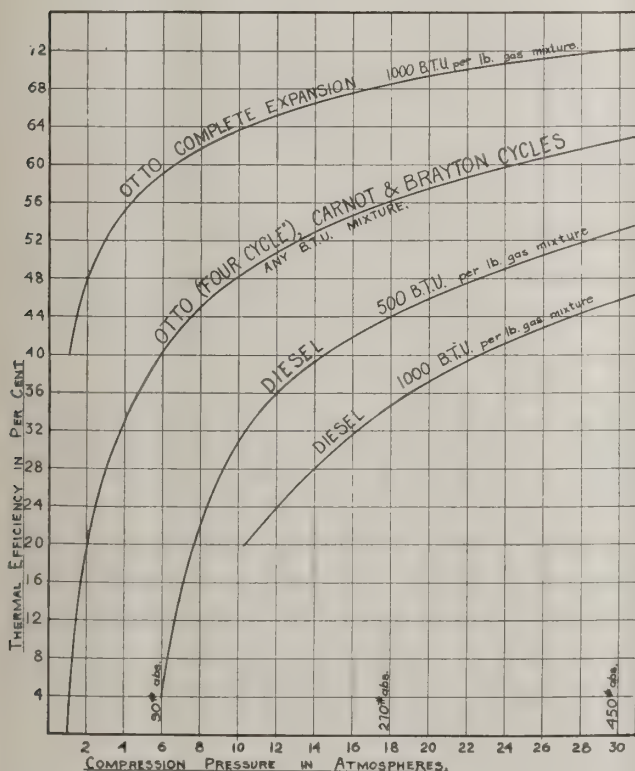 72
68
64
60
56
52
48
44
40
36
32
28
24
20
16
12
8
4
THERMAL EFFICIENCY IN PER CENT
OTTO COMPLETE EXPANSION 1000 B.T.U. per lb. gas mixture.
OTTO ("FOUR CYCLE"), CARNOT & BRAYTON CYCLES
ANY B.T.U. MIXTURE.
DIESEL 500 B.T.U. per lb. gas mixture
DIESEL 1000 B.T.U. per lb. gas mixture
90# abs.
270# abs.
450# abs.
2 4 6 8 10 12 14 16 18 20 22 24 26 28 30
COMPRESSION PRESSURE IN ATMOSPHERES.